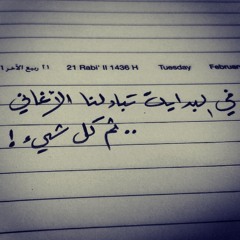 ٢١ ربيع الآخر 21 Rabi' II 1436 H Tuesday Februar
في البداية تبادلنا الأغاني
.. ثم كل شيء !